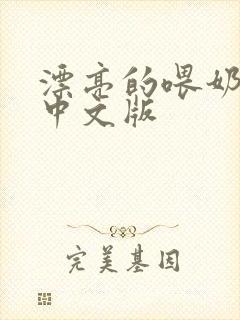 漂亮的喂奶
中文版
完美基因